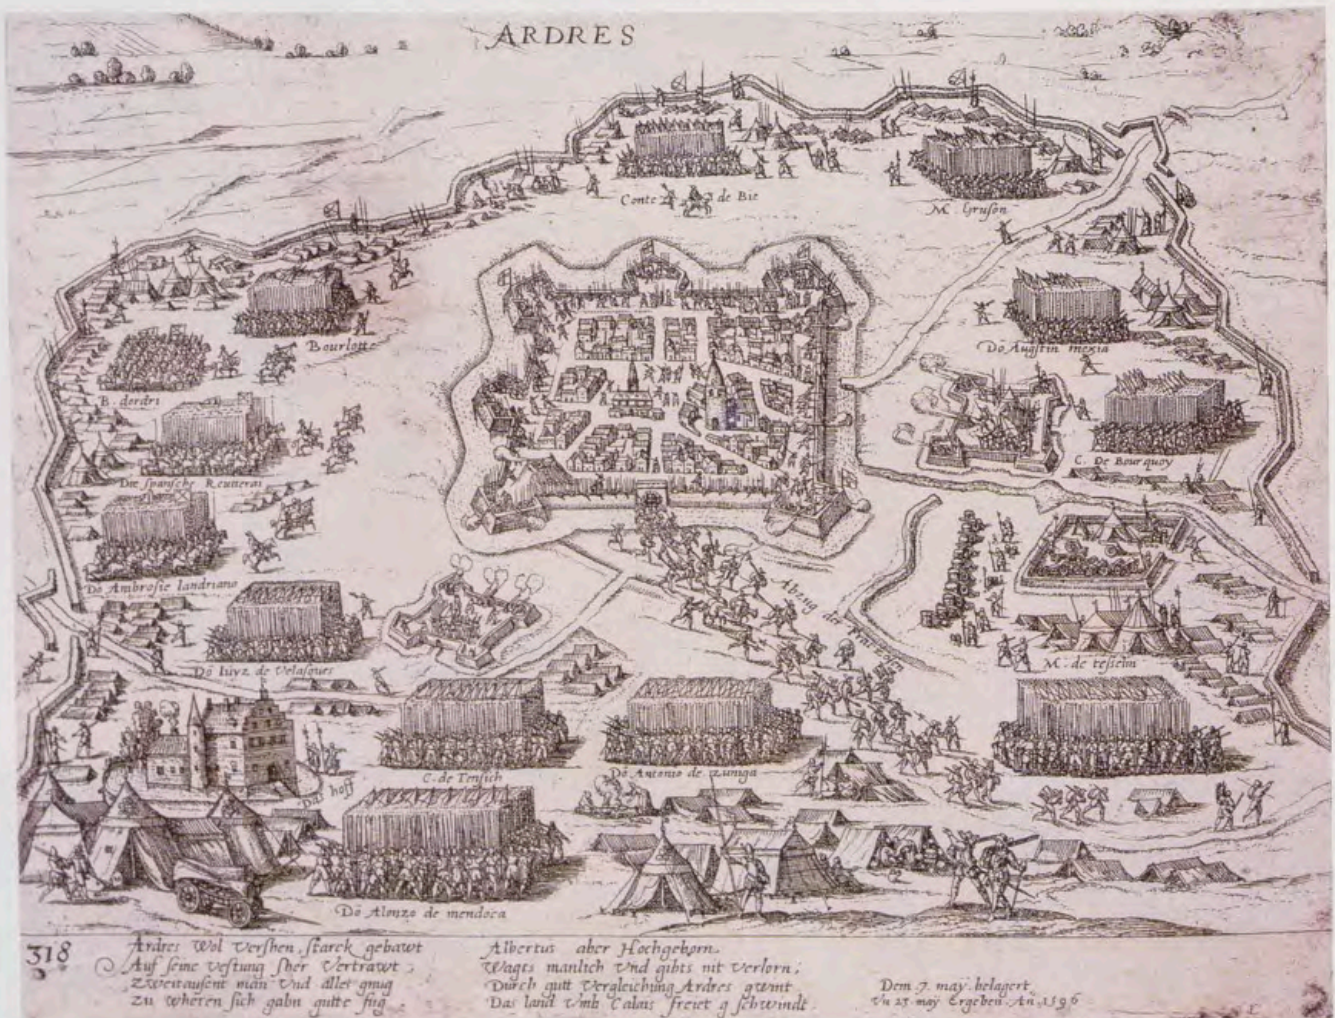 ARDRES
Conte de Bie
M. Gruson
Bourlotte
Dõ Augstin mexia
B. dordri
C. De Bourquoy
Die spansche Reutterai
Dõ Ambrosie landriano
Abzug der
Dõ luyz de Velasques
M. de tesselin
C. de Tensich
Dõ Antonio de zuniga
Das hoff
Dõ Alonzo de mendoca
318
Ardres Wol Versehen, starck gebawt
Auf seine Vestung sher Vertrawt,
Zweitausent man Vnd alles gnug
Zu wheren sich gabn gutte fug.
Albertus aber Hochgeborn.
Wagts manlich Vnd gibts nit Verlorn;
Durch gutt Vergleichung Ardres gwint
Das land Vmb Calais freiet gschwindt.
Dem 7. may. belagert
Vn 23 may Ergeben. An. 1596